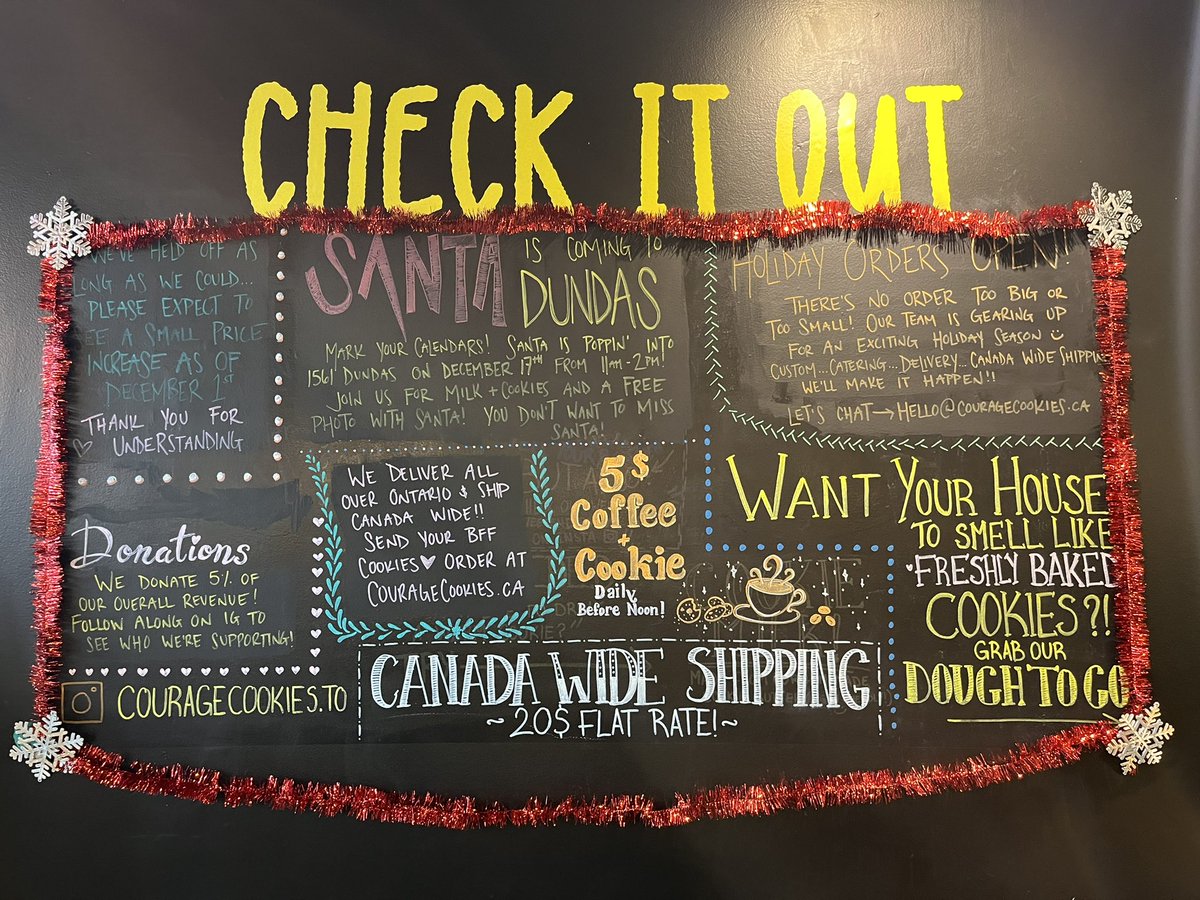 CHECK IT OUT
WE'VE HELD OFF AS
LONG AS WE COULD...
PLEASE EXPECT TO
SEE A SMALL PRICE
INCREASE AS OF
DECEMBER 1ST
THANK YOU FOR
UNDERSTANDING
SANTA IS COMING TO
DUNDAS
MARK YOUR CALENDARS! SANTA IS POPPIN' INTO
1561 DUNDAS ON DECEMBER 17TH FROM 11AM-2PM!
JOIN US FOR MILK + COOKIES AND A FREE
PHOTO WITH SANTA! YOU DON'T WANT TO MISS
SANTA!
HOLIDAY ORDERS OPEN!
THERE'S NO ORDER TOO BIG OR
TOO SMALL! OUR TEAM IS GEARING UP
FOR AN EXCITING HOLIDAY SEASON
CUSTOM...CATERING...DELIVERY...CANADA WIDE SHIPPING
WE'LL MAKE IT HAPPEN!!
LET'S CHAT→HELLO@COURAGECOOKIES.CA
Donations
WE DONATE 5% OF
OUR OVERALL REVENUE!
FOLLOW ALONG ON IG TO
SEE WHO WE'RE SUPPORTING!
COURAGECOOKIES.TO
WE DELIVER ALL
OVER ONTARIO & SHIP
CANADA WIDE!!
SEND YOUR BFF
COOKIES♥ ORDER AT
COURAGECOOKIES.CA
5$
Coffee
+
Cookie
Daily
Before Noon!
CANADA WIDE SHIPPING
~20$ FLAT RATE!~
WANT YOUR HOUSE
TO SMELL LIKE
FRESHLY BAKED
COOKIES?!
GRAB OUR
DOUGH TO GO